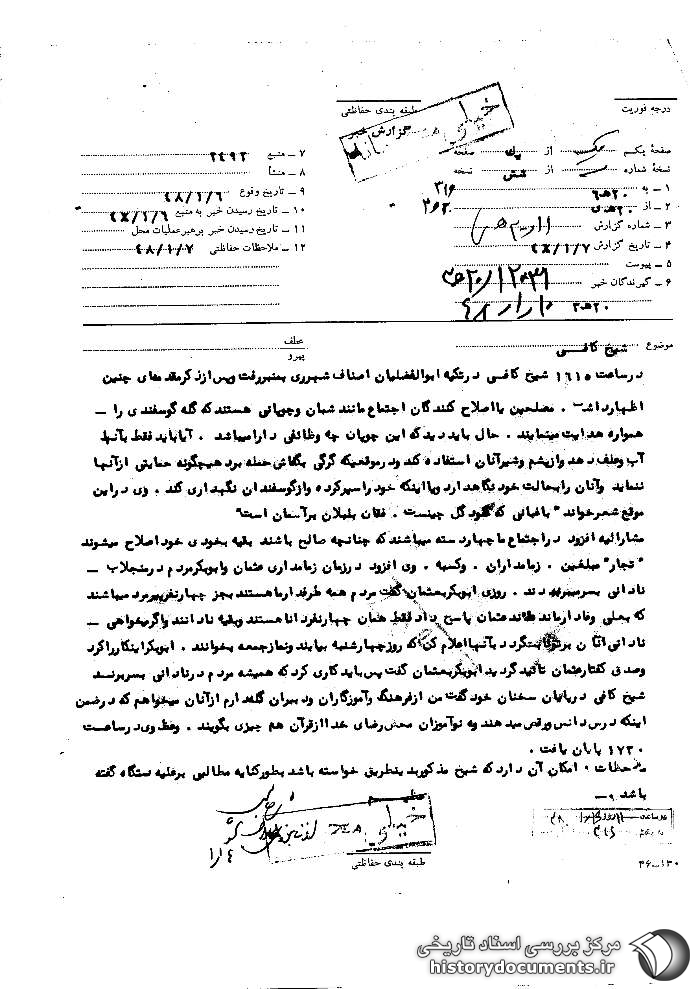 درجه فوریت
طبقه بندی حفاظتی
خیلی محرمانه
گزارش خبر
صفحه یکم یک از یک صفحه
نسخه شماره از شش نسخه
۱ ـ به ۳۱۶
۲ ـ از ۲۰هـ ۳
۳ ـ شماره گزارش
۴ ـ تاریخ گزارش ۴۸/۱/۷
۵ ـ پیوست
۶ ـ گیرندگان خبر
۷ ـ منبع ۲۴۹۲
۸ ـ منشأ
۹ ـ تاریخ وقوع ۴۸/۱/۶
۱۰ ـ تاریخ رسیدن خبر به منبع ۴۸/۱/۶
۱۱ ـ تاریخ رسیدن خبر برهبر عملیات محل
۱۲ ـ ملاحظات حفاظتی ۴۸/۱/۷
موضوع شیخ کافی
عطف
پیرو
در ساعت ۱۶۱۰ شیخ کافی در تکیه ابوالفضلیان اصناف شهرری بمنبر رفت و پس از ذکر مقدمه ای چنین
اظهار داشت . مصلحین یا اصلاح کنندگان اجتماع مانند شبان و چوپانی هستند که گله گوسفندی را ـ
همواره هدایت مینمایند . حال باید دید که این چوپان چه وظائفی دارا میباشد . آیا باید فقط بآنها
آب و علف دهد و از پشم و شیر آنان استفاده کند و در موقعیکه گرگی بگله اش حمله برد هیچگونه حمایتی از آنها
ننماید و آنان را بحالت خود نگاهدارد و یا اینکه خود را سپر کرده و از گوسفندان نگهداری کند . وی در این
موقع شعر خواند " باغبانی که گل چیست . فغان بلبلان بر آسمان است "
مشارالیه افزود در اجتماع ما چهار دسته میباشند که چنانچه صالح باشند بقیه بخودی خود اصلاح میشوند
" تجار " مبلغین . زمامداران . وکسبه . وی افزود در زمان زمامداری عثمان و ابوبکر مردم در منجلاب ـ
نادانی بسر میبردند . روزی ابوبکر بعثمان گفت مردم همه طرفدار ما هستند بجز چهار نفر پیرمرد میباشند
که بعلی وفادار ماند عثمان پاسخ داد فقط همان چهار نفر دانا هستند و بقیه نادانند و اگر میخواهی ـ
نادانی آنان بر تو ثابت گردد بآنها اعلام کن که روز چهارشنبه بیایند و نماز جمعه بخوانند . ابوبکر اینکار را کرد
وصدق گفتار عثمان تأکید گردید ابوبکر بعثمان گفت پس باید کاری کرد که همیشه مردم در نادانی بسر برند
شیخ کافی در پایان سخنان خود گفت من از فرهنگ و آموزگاران و دبیران گله دارم از آنان میخواهم که در ضمن
اینکه درس دانس و رقص میدهند به نوآموزان محض رضای خدا از قرآن هم چیزی بگویند . وعظ وی در ساعت
۱۷۳۰ پایان یافت .
ملاحظات . امکان آن دارد که شیخ مذکور بدینطریق خواسته باشد بطور کنایه مطالبی بر علیه دستگاه گفته
باشد
خیلی محرمانه
طبقه بندی حفاظتی
۴۶ـ۱۳۰
مرکز بررسی اسناد تاریخی
historydocuments.ir